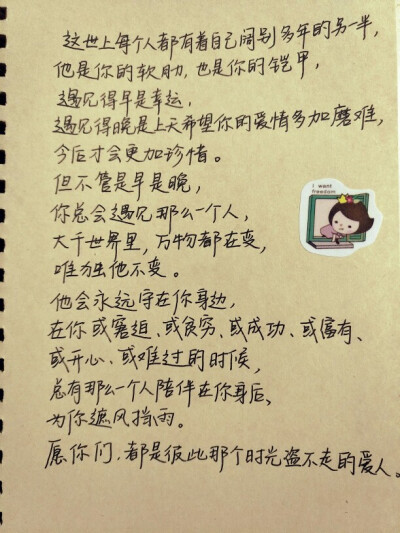 这世上每个人都有着自己阔别多年的另一半，
他是你的软肋，也是你的铠甲，
遇见得早是幸运，
遇见得晚是上天希望你的爱情多加磨难，
今后才会更加珍惜。
但不管是早是晚，
你总会遇见那么一个人，
大千世界里，万物都在变，
唯独他不变。
他会永远守在你身边，
在你或窘迫、或贫穷、或成功、或富有、
或开心、或难过的时候，
总有那么一个人陪伴在你身后、
为你遮风挡雨。
愿你们，都是彼此那个时光盗不走的爱人。
I want
freedom